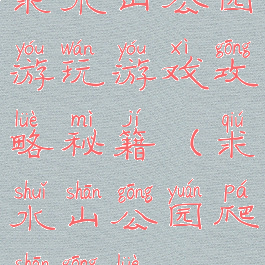 求水山公园
yóu wán yóu xì gōng
游玩游戏攻
lüè mì jí qiú
略秘籍（求
shuǐ shān gōng yuán pá
水山公园爬
shān gōng lüè